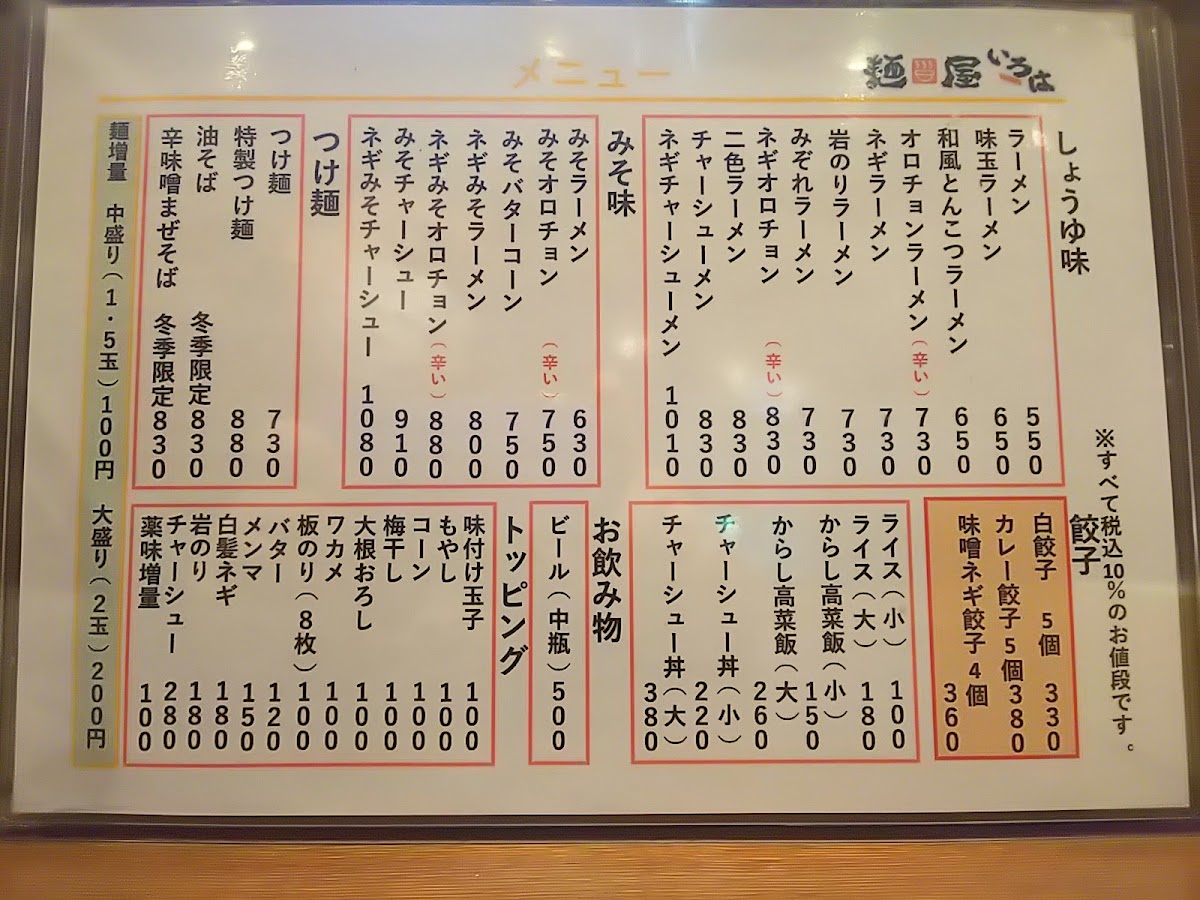 メニュー
麺屋いろは
※すべて税込10%のお値段です。
しょうゆ味
ラーメン 550
味玉ラーメン 650
和風とんこつラーメン 650
オロチョンラーメン（辛い） 730
ネギラーメン 730
岩のりラーメン 730
みぞれラーメン 730
ネギオロチョン （辛い） 830
二色ラーメン 830
チャーシューメン 830
ネギチャーシューメン 1010
みそ味
みそラーメン 630
みそオロチョン （辛い） 750
みそバターコーン 750
ネギみそラーメン 800
ネギみそオロチョン（辛い） 880
みそチャーシュー 910
ネギみそチャーシュー 1080
つけ麺
つけ麺 730
特製つけ麺 880
油そば 冬季限定 830
辛味噌まぜそば 冬季限定 830
麺増量 中盛り（1・5玉）100円 大盛り（2玉）200円
餃子
白餃子 5個 330
カレー餃子 5個 380
味噌ネギ餃子 4個 360
ライス（小） 100
ライス（大） 180
からし高菜飯（小） 150
からし高菜飯（大） 260
チャーシュー丼（小） 220
チャーシュー丼（大） 380
お飲み物
ビール（中瓶） 500
トッピング
味付け玉子 100
もやし 100
コーン 100
梅干し 100
大根おろし 100
ワカメ 100
板のり（8枚） 100
バター 120
メンマ 150
白髪ネギ 180
岩のり 180
チャーシュー 280
薬味増量 100